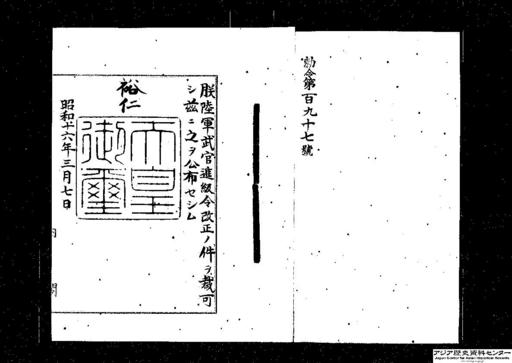 勅令第百九十七號
朕陸軍武官進級令改正ノ件ヲ裁可
シ茲ニ之ヲ公布セシム
裕仁
天皇
御璽
昭和十六年三月七日
内閣
アジア歴史資料センター
Japan Center for Asian Historical Records